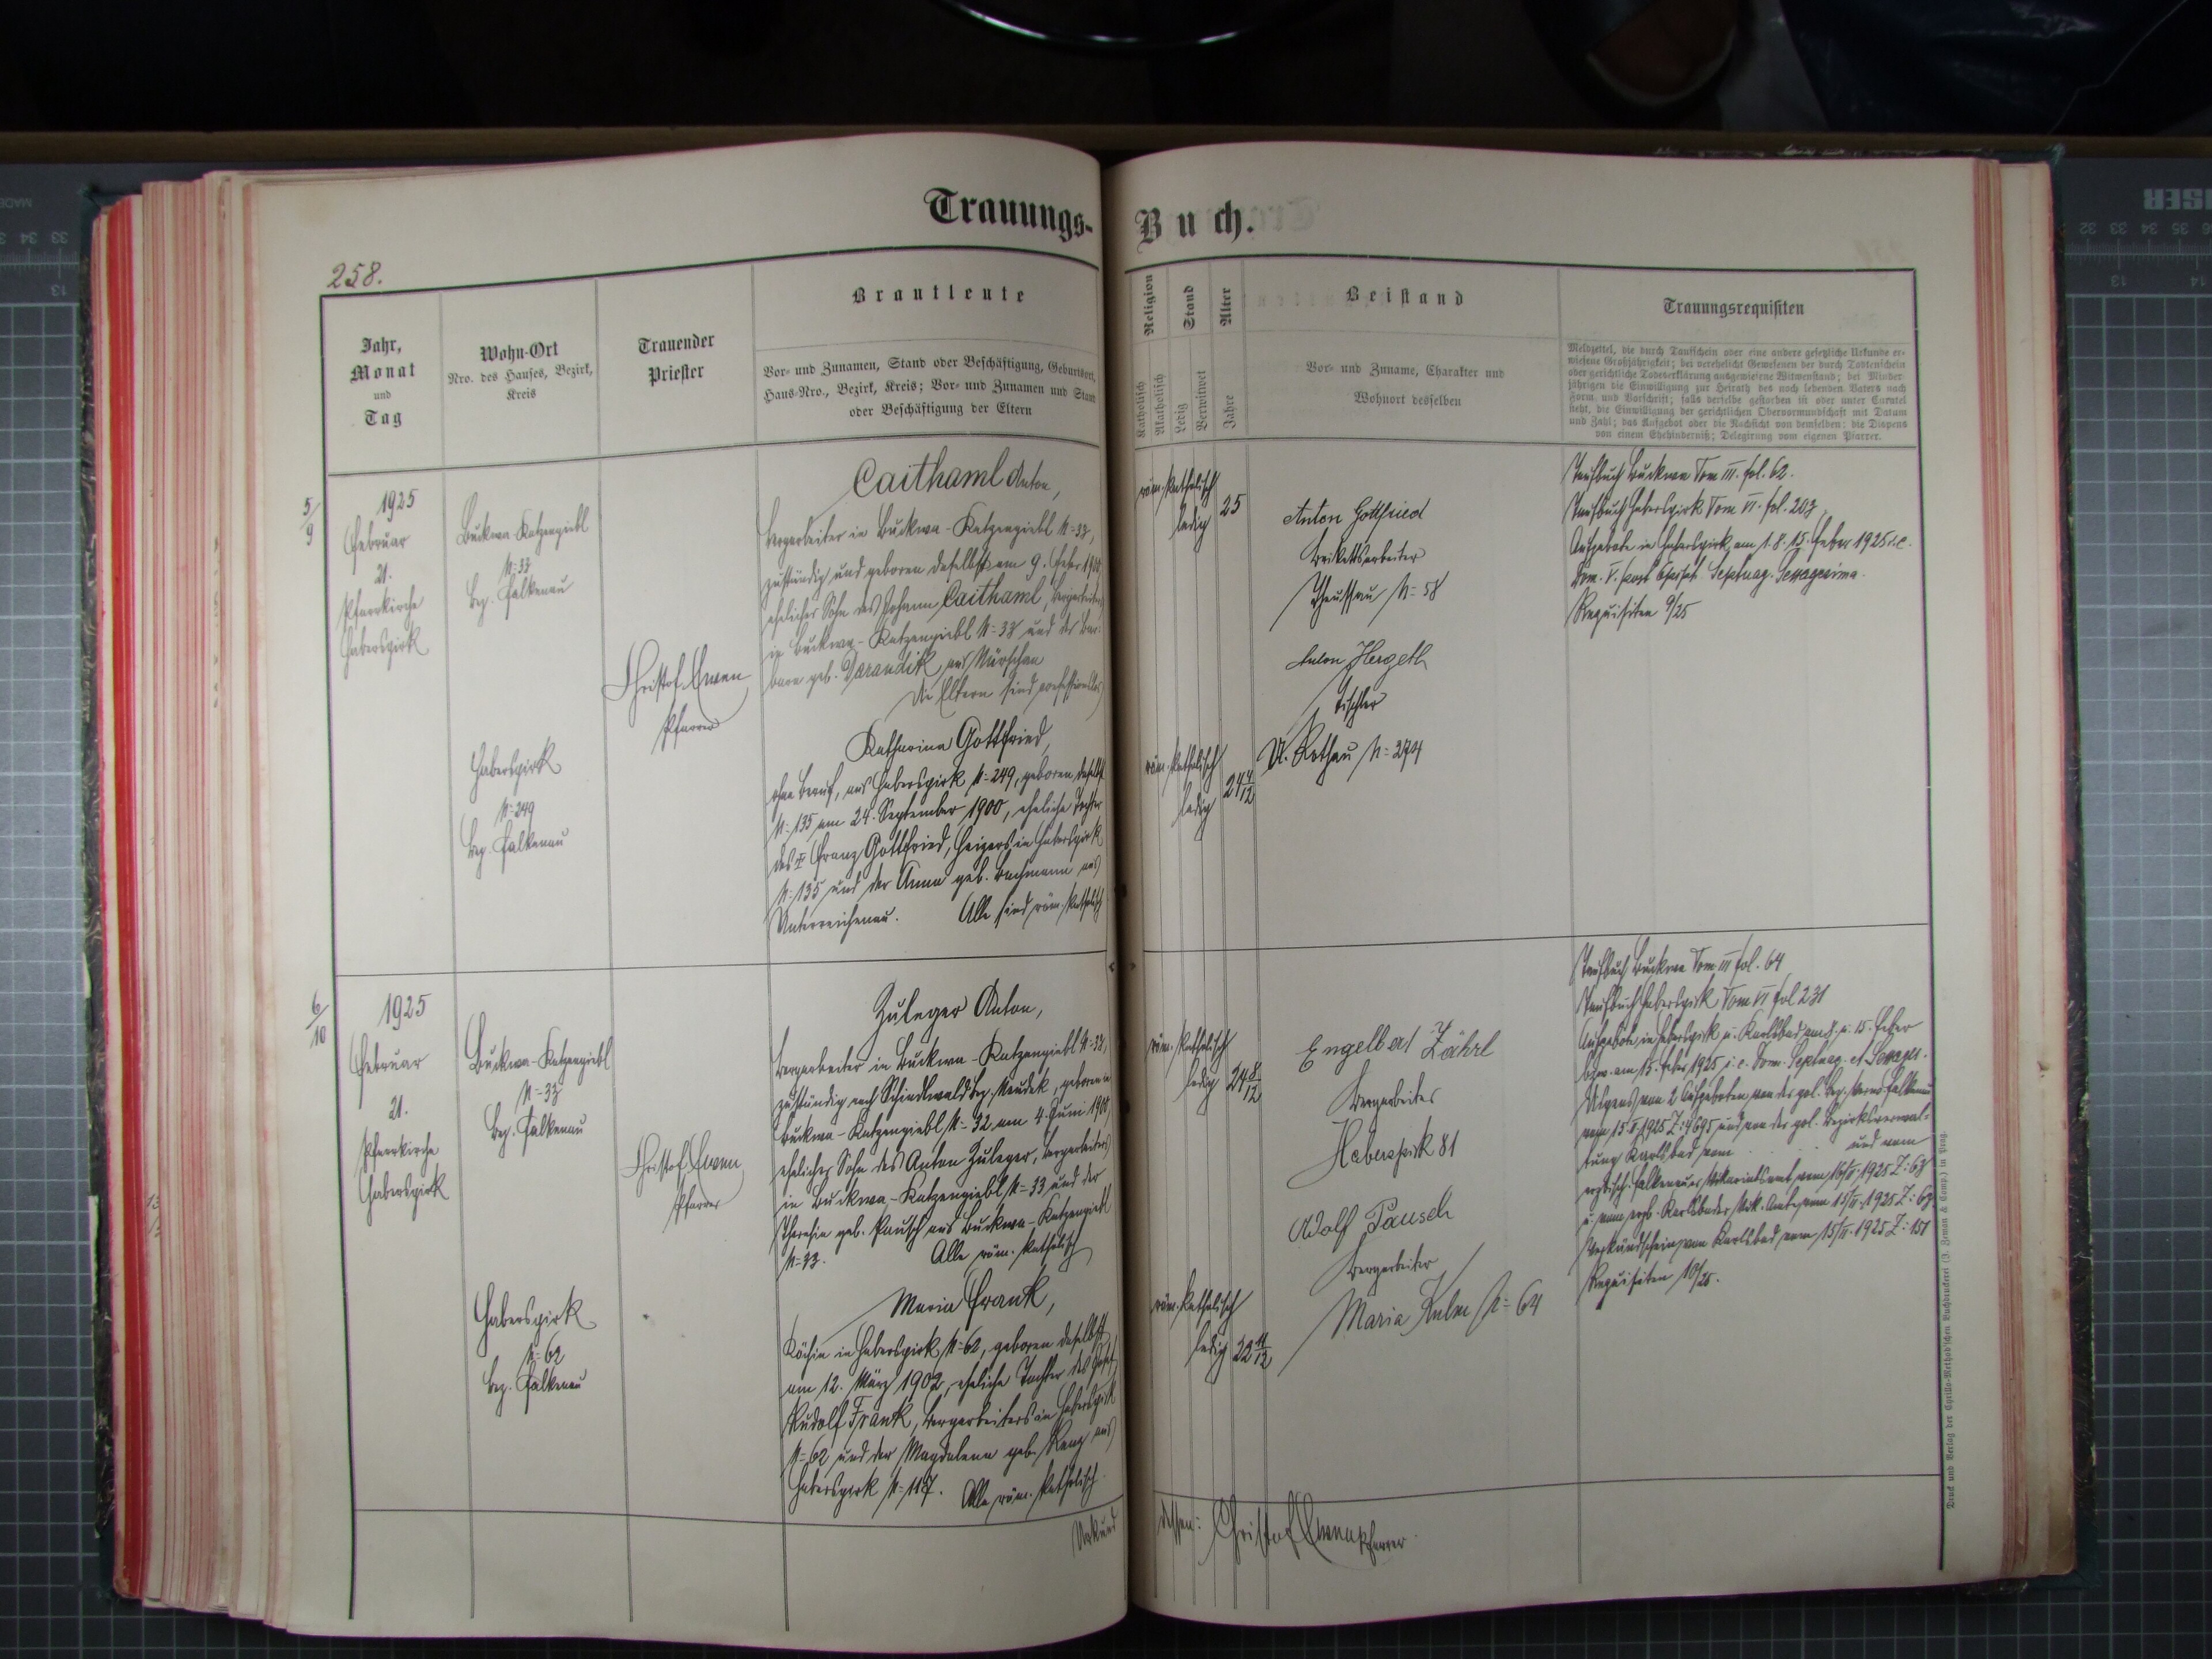 Trauungs-
Buch.
258.
Jahr,
Monat
und
Tag
Wohn-Ort
Nro. des Hauses, Bezirk,
Kreis
Trauender
Priester
Brautleute
Vor- und Zunamen, Stand oder Beschäftigung, Geburtsort,
Haus-Nro., Bezirk, Kreis; Vor- und Zunamen und Stand
oder Beschäftigung der Eltern
Religion
Stand
Alter
Katholisch
Akatholisch
Ledig
Verwitwet
Jahre
Beistand
Vor- und Zuname, Charakter und
Wohnort desselben
Trauungsrequisiten
Meldzettel, die durch Taufschein oder eine andere gesetzliche Urkunde er-
wiesene Großjährigkeit; bei verehelicht Gewesenen der durch Todtenschein
oder gerichtliche Todeserklärung ausgewiesene Witwenstand; bei Minder-
jährigen die Einwilligung zur Heirath des noch lebenden Vaters nach
Form und Vorschrift; falls derselbe gestorben ist oder unter Curatel
steht, die Einwilligung der gerichtlichen Obervormundschaft mit Datum
und Zahl; das Aufgebot oder die Nachsicht von demselben; die Dispens
von einem Ehehinderniß; Delegirung vom eigenen Pfarrer.
5/9
1925
Februar
21.
Pfarrkirche
Haberspirk
Buckwa-Katzengiebl
N= 33
Bez. Falkenau
Haberspirk
N= 249
Bez. Falkenau
Christof
Pfarrer
Caithaml Anton,
Bergarbeiter in Buckwa-Katzengiebl N= 33,
zuständig und geboren daselbst am 9. Feber 1900
ehelicher Sohn des Johann Caithaml, Bergarbeiters
in Buckwa-Katzengiebl N= 33 und der Bar-
bara geb. Varandik aus Nürschan
Die Eltern sind confessionslos
Katharina Gottfried,
ohne Beruf, aus Haberspirk N= 249, geboren daselbst
N= 135 am 24. September 1900, eheliche Tochter
des Franz Gottfried, Heizers in Haberspirk
N= 135 und der Anna geb. Bachmann aus
Unterreichenau. Alle sind röm. katholisch
röm. katholisch
ledig
25
röm. katholisch
ledig
24 4/12
Anton Gottfried
Brikettsarbeiter
Theussau N= 58
Anton Hergeth
Tischler
U. Rothau N= 274
Taufbuch Buckwa Tom III. fol. 62.
Taufbuch Haberspirk Tom VI. fol. 203
Aufgebote in Haberspirk am 1. 8. 15. Feber 1925 i.e.
Dom. V. post Epiph. Septuag. Sexagesima.
Requisiten 9/25
6/10
1925
Februar
21.
Pfarrkirche
Haberspirk
Buckwa-Katzengiebl
N= 33
Bez. Falkenau
Haberspirk
N= 62
Bez. Falkenau
Christof
Pfarrer
Zuleger Anton,
Bergarbeiter in Buckwa-Katzengiebl N= 33,
zuständig nach Schindlwald Bez. Neudek, geboren in
Buckwa-Katzengiebl N= 32 am 4. Juni 1900,
ehelicher Sohn des Anton Zuleger, Bergarbeiters
in Buckwa-Katzengiebl N= 33 und der
Theresia geb. Pausch aus Buckwa-Katzengiebl
N= 33. Alle röm. katholisch
Maria Frank,
Köchin in Haberspirk N= 62, geboren daselbst
am 12. März 1902, eheliche Tochter des
Rudolf Frank, Bergarbeiters in Haberspirk
N= 62 und der Magdalena geb. aus
Haberspirk N= 117. Alle röm. katholisch.
röm. katholisch
ledig
24 8/12
röm. katholisch
ledig
22 11/12
Engelbert Zährl
Bergarbeiter
Haberspirk 81
Adolf Pausch
Bergarbeiter
Maria Kulm N= 64
Taufbuch Buckwa Tom III fol. 64
Taufbuch Haberspirk Tom VI fol 231
Aufgebote in Haberspirk u. Karlsbad am 8. u. 15. Feber
bzw. am 15. Feber 1925 i.e. Dom. Septuag. et Sexages.
Dispens von 2 Aufgeboten von der pol. Bez. Verw. Falkenau
vom 15/II. 1925 Z: 4695 und von der pol. Bezirksverwal-
tung Karlsbad vom und vom
erzbisch. Falkenauer Vikariatsamt vom 16/II. 1925 Z: 63
u. vom erzb. Karlsbader Vik. Amte vom 15/II. 1925 Z: 63
Verkündschein von Karlsbad vom 15/II. 1925 Z: 151
Requisiten 10/25.
Urkund
dessen: Christof Pfarrer
Druck und Verlag der Cyrillo-Method'schen Buchdruckerei (J. Zeman & Comp.) in Prag.